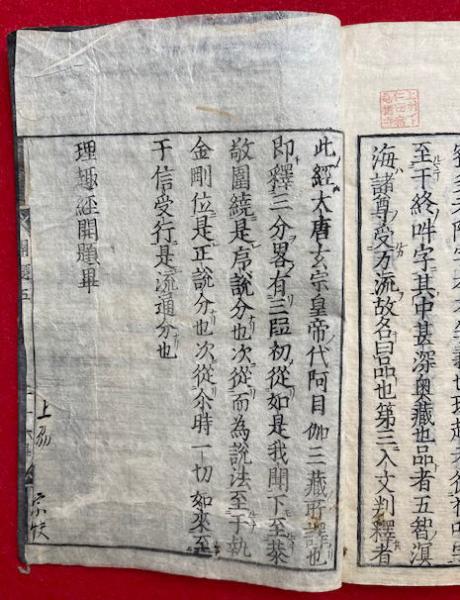 至于終吽字其中甚深奥藏也品者五智溟
海諸尊受万流故名曰品也第三入文判釋者
此經大唐玄宗皇帝代阿目伽三藏所譯也
即釋三分畧有三初從如是我聞下至恭
敬圍繞是序說分也次從而為說法至于執
金剛位是正說分也次從尒時一切如來至
于信受行是流通分也
理趣經開題畢